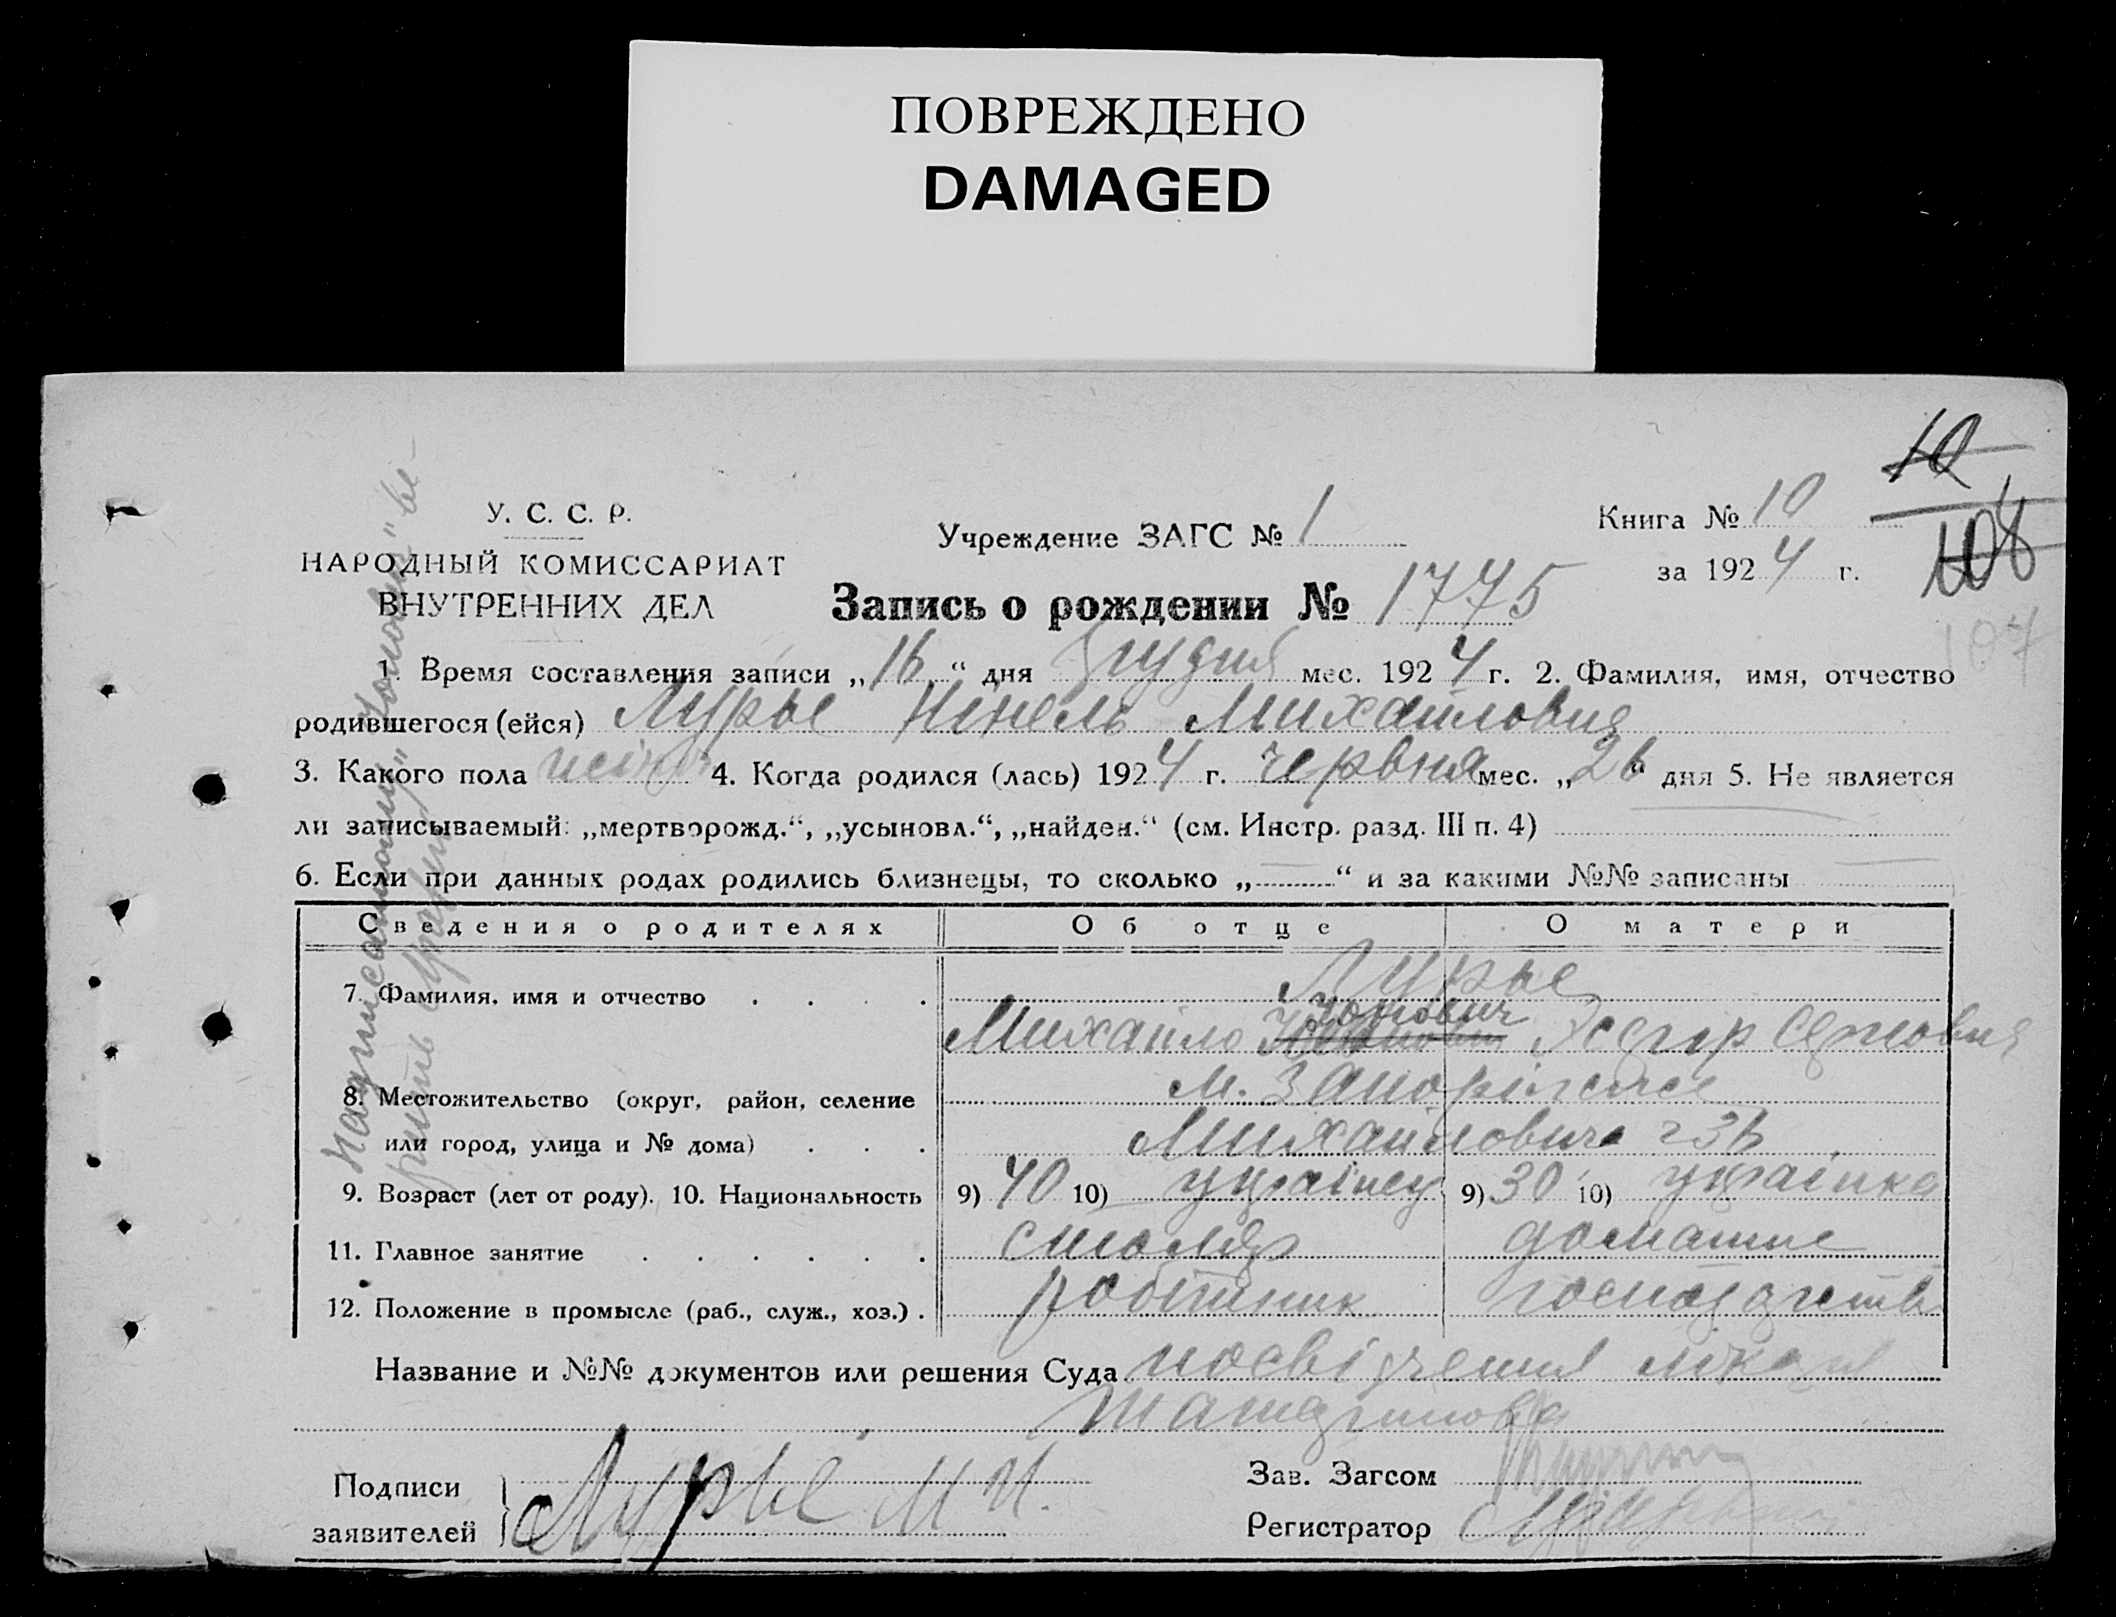 ПОВРЕЖДЕНО
DAMAGED
У. С. С. Р.
НАРОДНЫЙ КОМИССАРИАТ
ВНУТРЕННИХ ДЕЛ
Учреждение ЗАГС № 1
Книга № 10
за 1924 г.
10
108
107
Запись о рождении № 1775
1. Время составления записи „16“ дня Грудня мес. 1924 г. 2. Фамилия, имя, отчество
родившегося (ейся) Лурье Нінель Михайловна
3. Какого пола 4. Когда родился (лась) 1924 г. Червня мес. „26“ дня 5. Не является
ли записываемый: „мертворожд.“, „усыновл.“, „найден.“ (см. Инстр. разд. III п. 4)
6. Если при данных родах родились близнецы, то сколько „—“ и за какими №№ записаны —
Сведения о родителях Об отце О матери
7. Фамилия, имя и отчество Лурье
Йонович
Михайло
8. Местожительство (округ, район, селение м. Запоріжжє
или город, улица и № дома)
9. Возраст (лет от роду). 10. Национальность 9) 40 10) украінец 9) 30 10) українка
11. Главное занятие столяр домашнє
12. Положение в промысле (раб., служ., хоз.) робітник
Название и №№ документов или решения Суда посвідчення лікаря
Подписи
заявителей
Лурье М И.
Зав. Загсом
Регистратор
Надписанному „Йонович“ ве-
рить